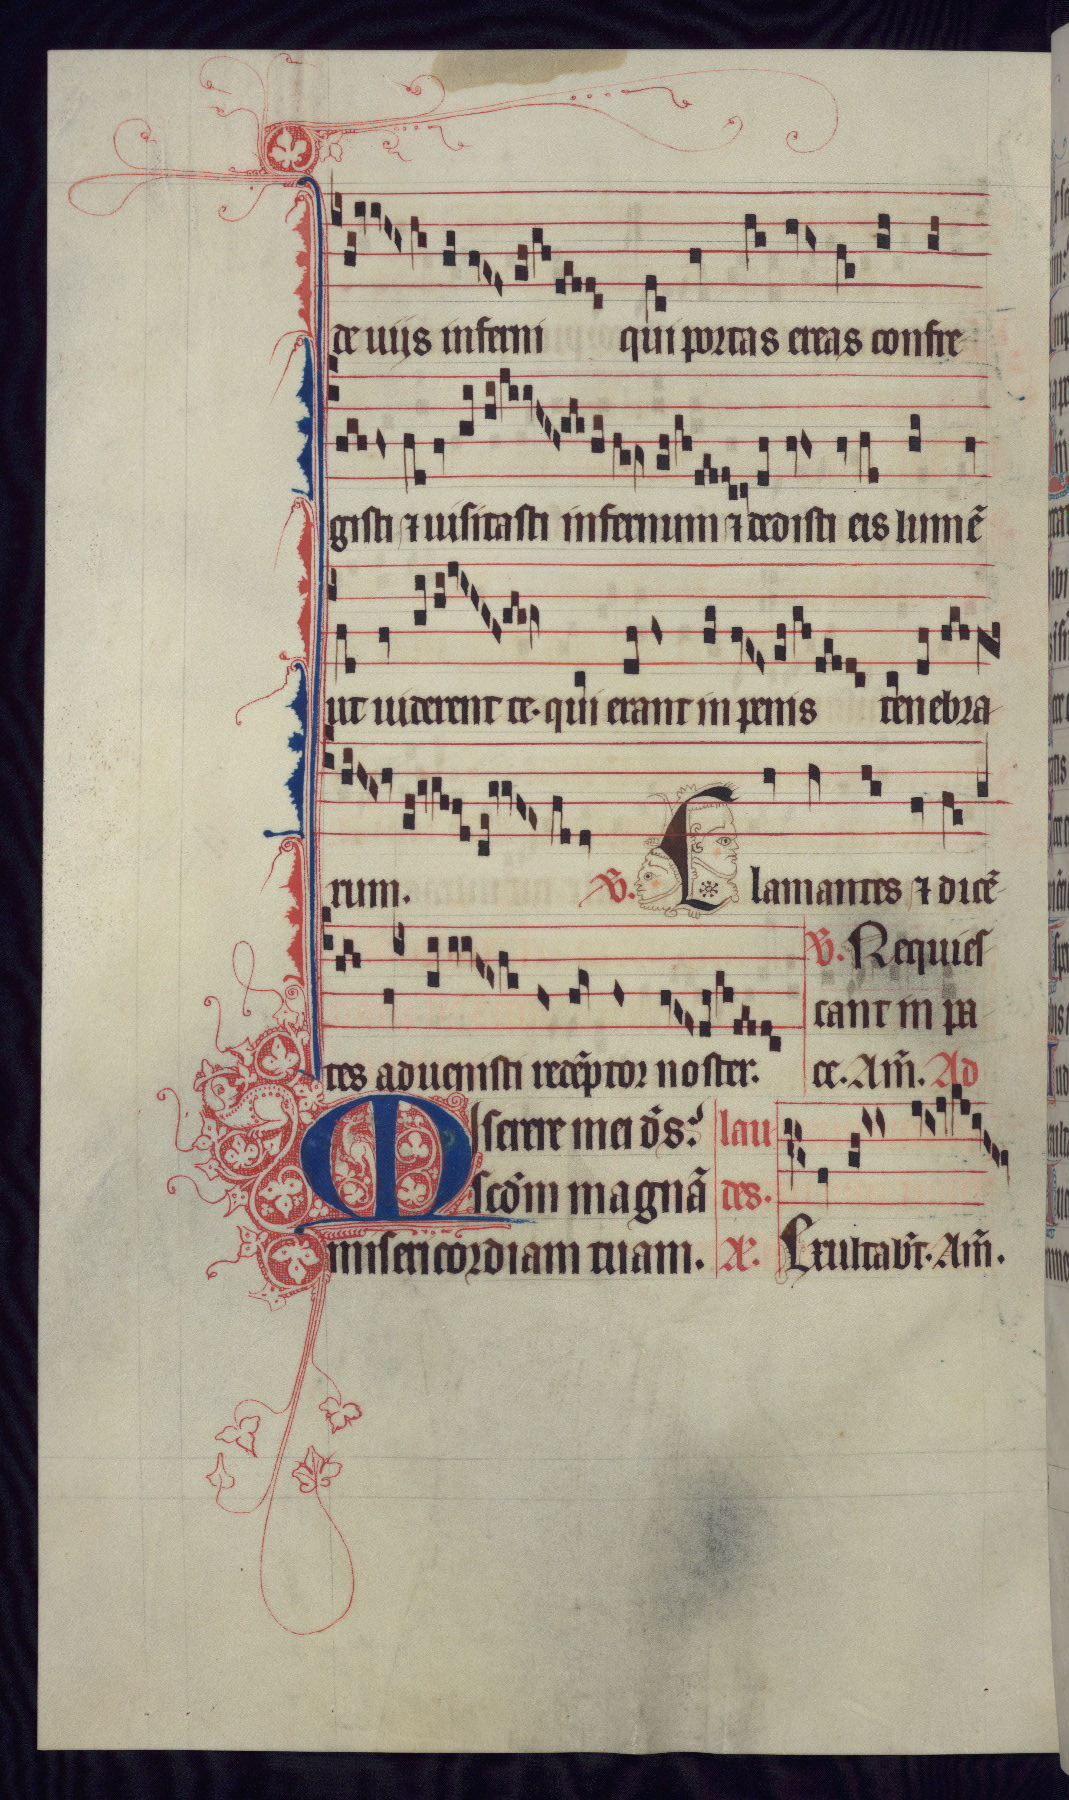 de uijs inferni qui portas ereas confre
gisti ⁊ uisitasti infernum ⁊ dedisti eis lumē
ut uiderent te. qui erant in penis tenebra
rum. V. Clamantes ⁊ dicē
tes aduenisti redēptor noster.
V. Requies
cant in pa
ce. Am̄. Ad
Miserere mei d̄s.
scd̄m magnā
misericordiam tuam.
lau
des. A.
Exultab̄t. Am̄.